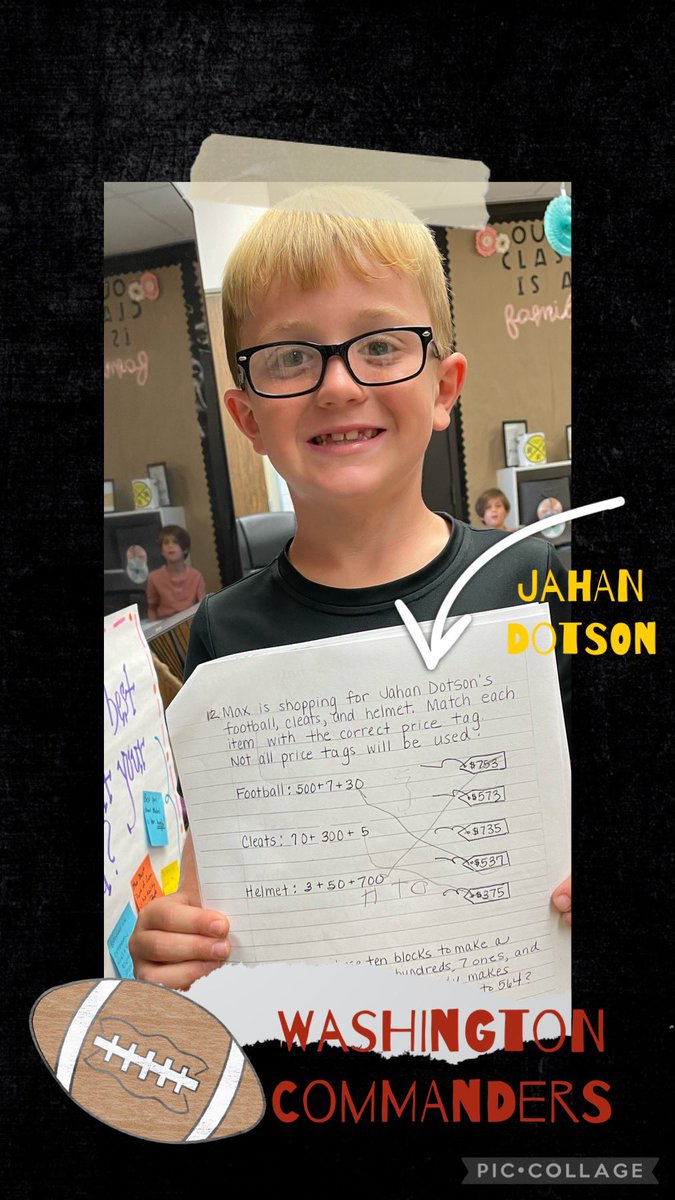 OUR
CLASS
IS A
family
JAHAN
DOTSON
best
your
?
12. Max is shopping for Jahan Dotson's
football, cleats, and helmet. Match each
item with the correct price tag.
Not all price tags will be used!
Football: 500+7+30
Cleats: 70+ 300 + 5
Helmet: 3 + 50 + 700
$753
$573
$735
$537
$375
ten blocks to make a
hundreds, 7 ones, and
makes
to 564?
WASHINGTON
COMMANDERS
PIC•COLLAGE